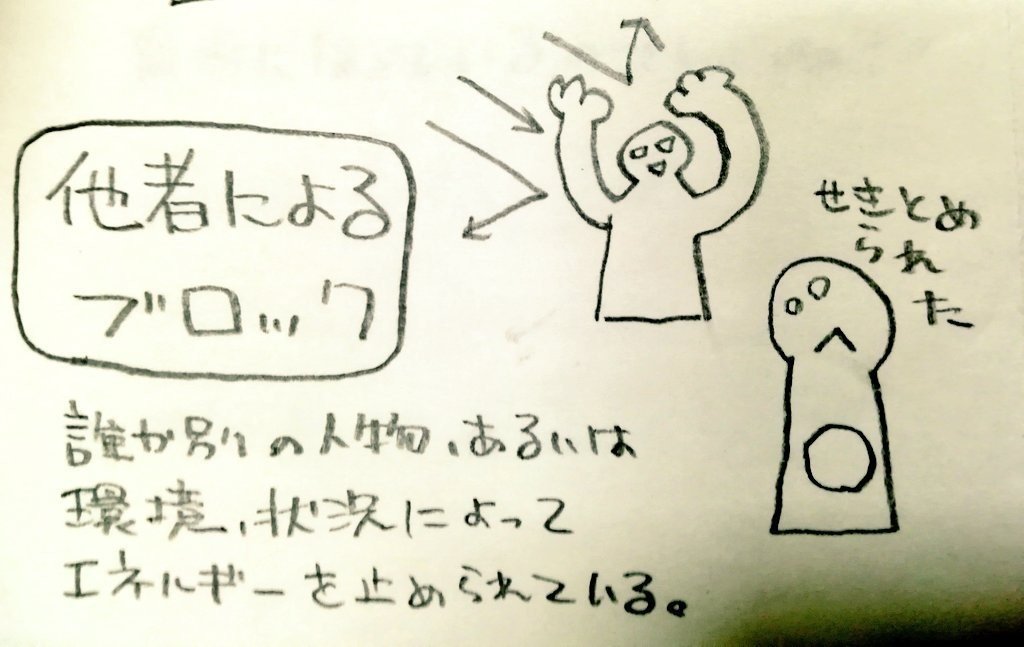 他者による
ブロック
せきとめ
られ
た
誰か別の人物、あるいは
環境、状況によって
エネルギーを止められている。